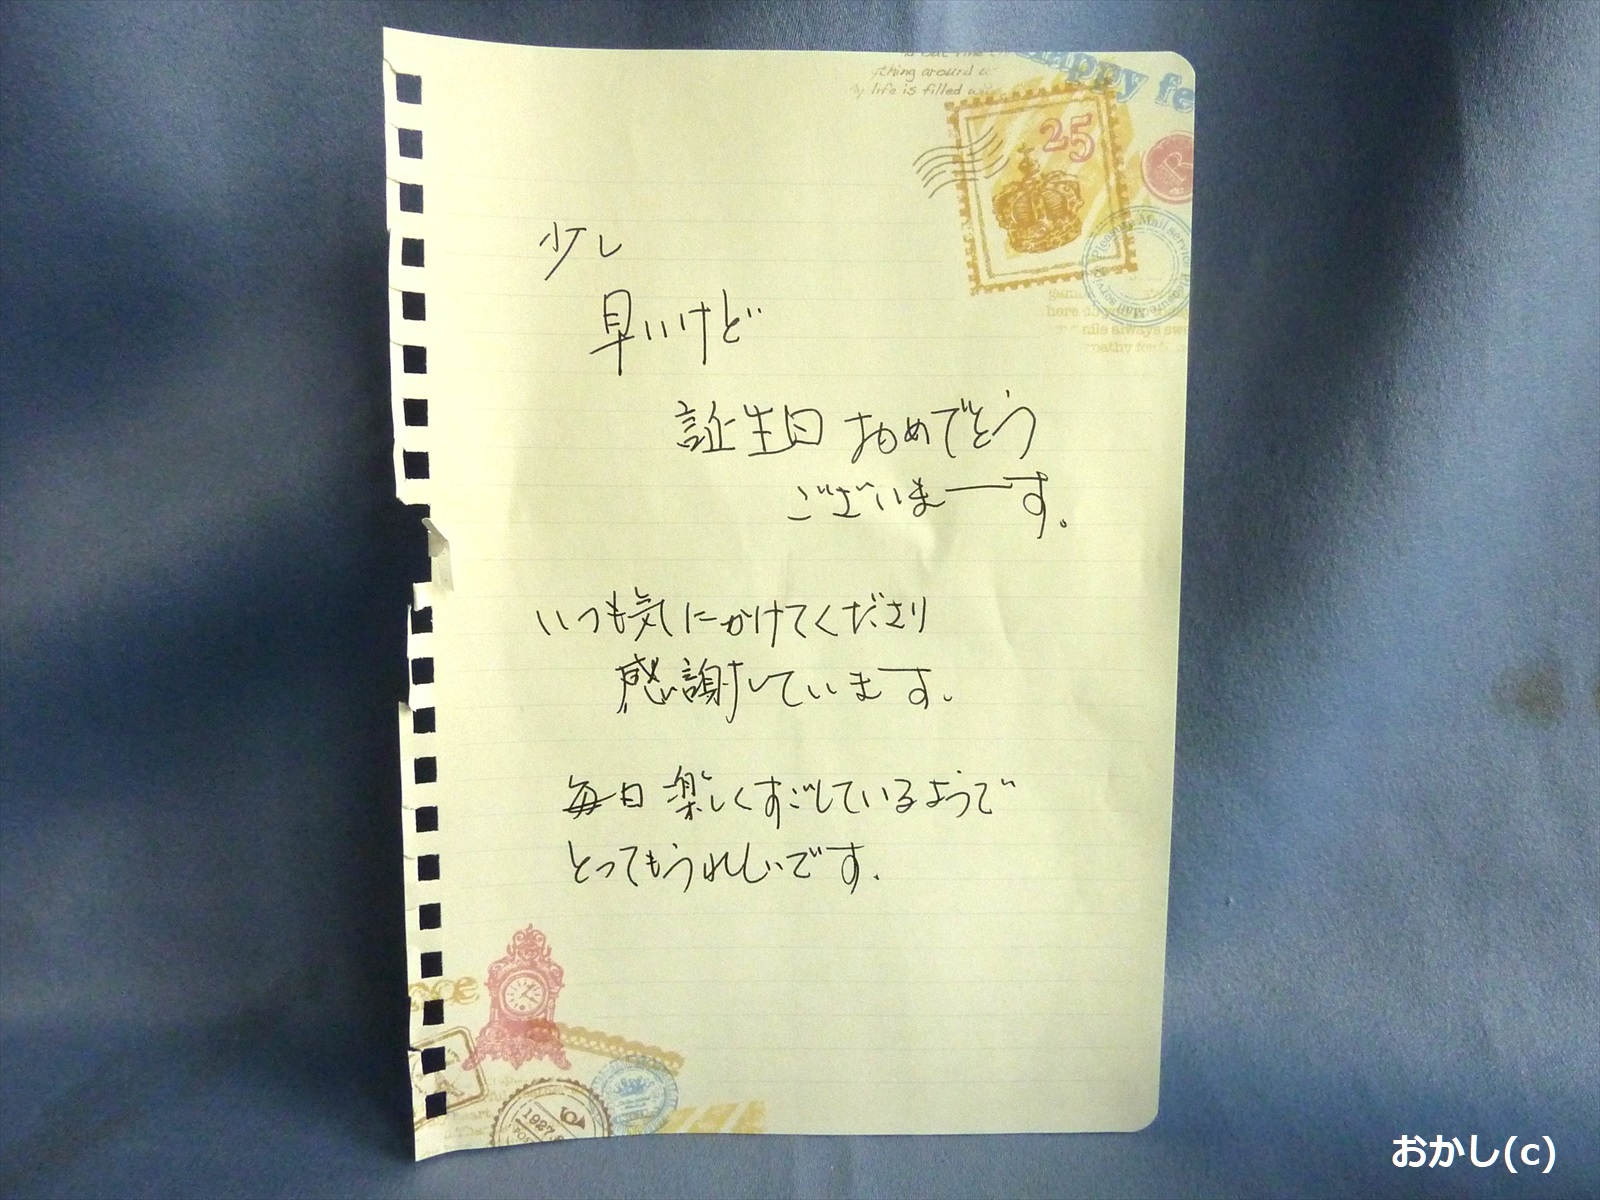 ything around
life is filled
Happy fe
25
R
Pleasure Mail service
here do
nile always swe
少し
早いけど
誕生日 おめでとう
ございまーす。
いつも気にかけてくださり
感謝しています。
毎日 楽しくすごしているようで
とってもうれしいです。
1927.
おかし(c)